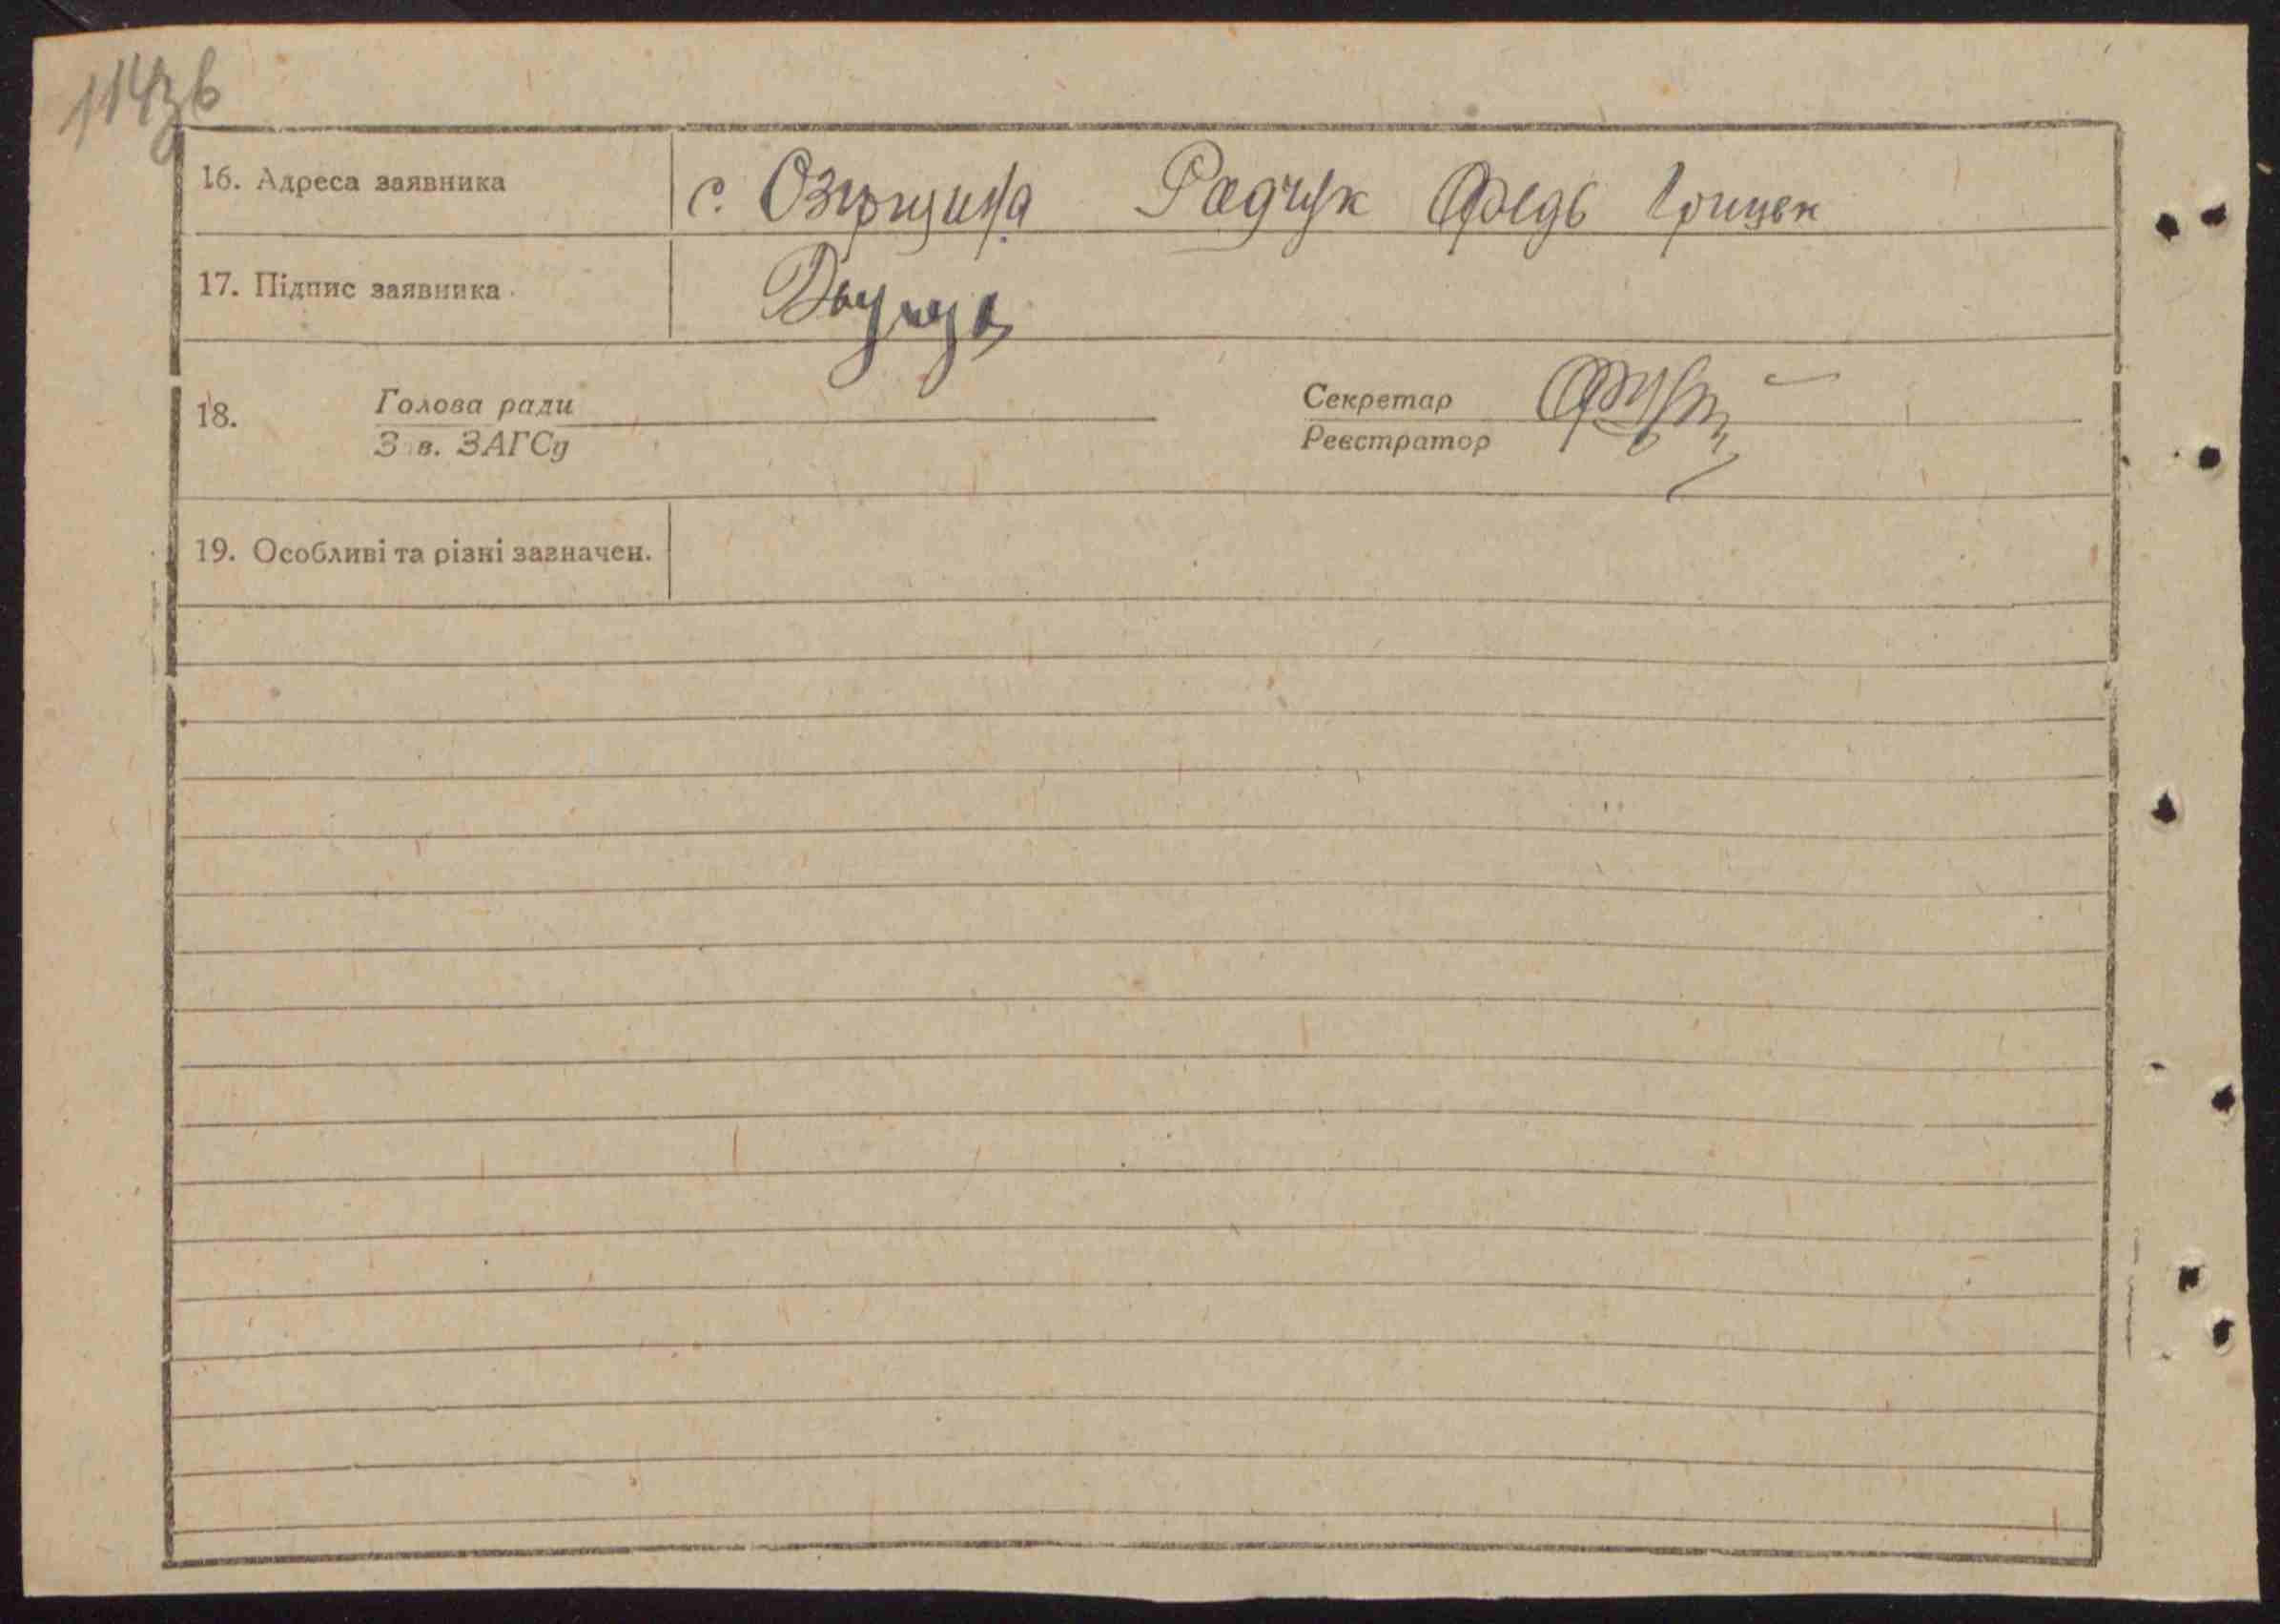 114зв
16. Адреса заявника с. Озирщина Радчук Федь Грицьк
17. Підпис заявника
18. Голова ради Секретар
З в. ЗАГСд Реєстратор
19. Особливі та різні зазначен.